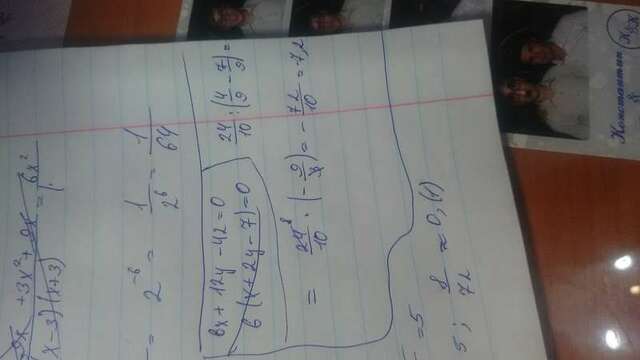 +3x² + 9x = 6x²
x-3)(x+3)
= 2⁻⁶ = 1/2⁶ = 1/64
6x + 12y - 42 = 0
6(x + 2y - 7) = 0
24/10 : (4/9 - 7/9) =
= 24⁸/10 · (- 9/3) = - 72/10 = -7,2
= 5
5; 8/72 ≈ 0,(1)
Константин